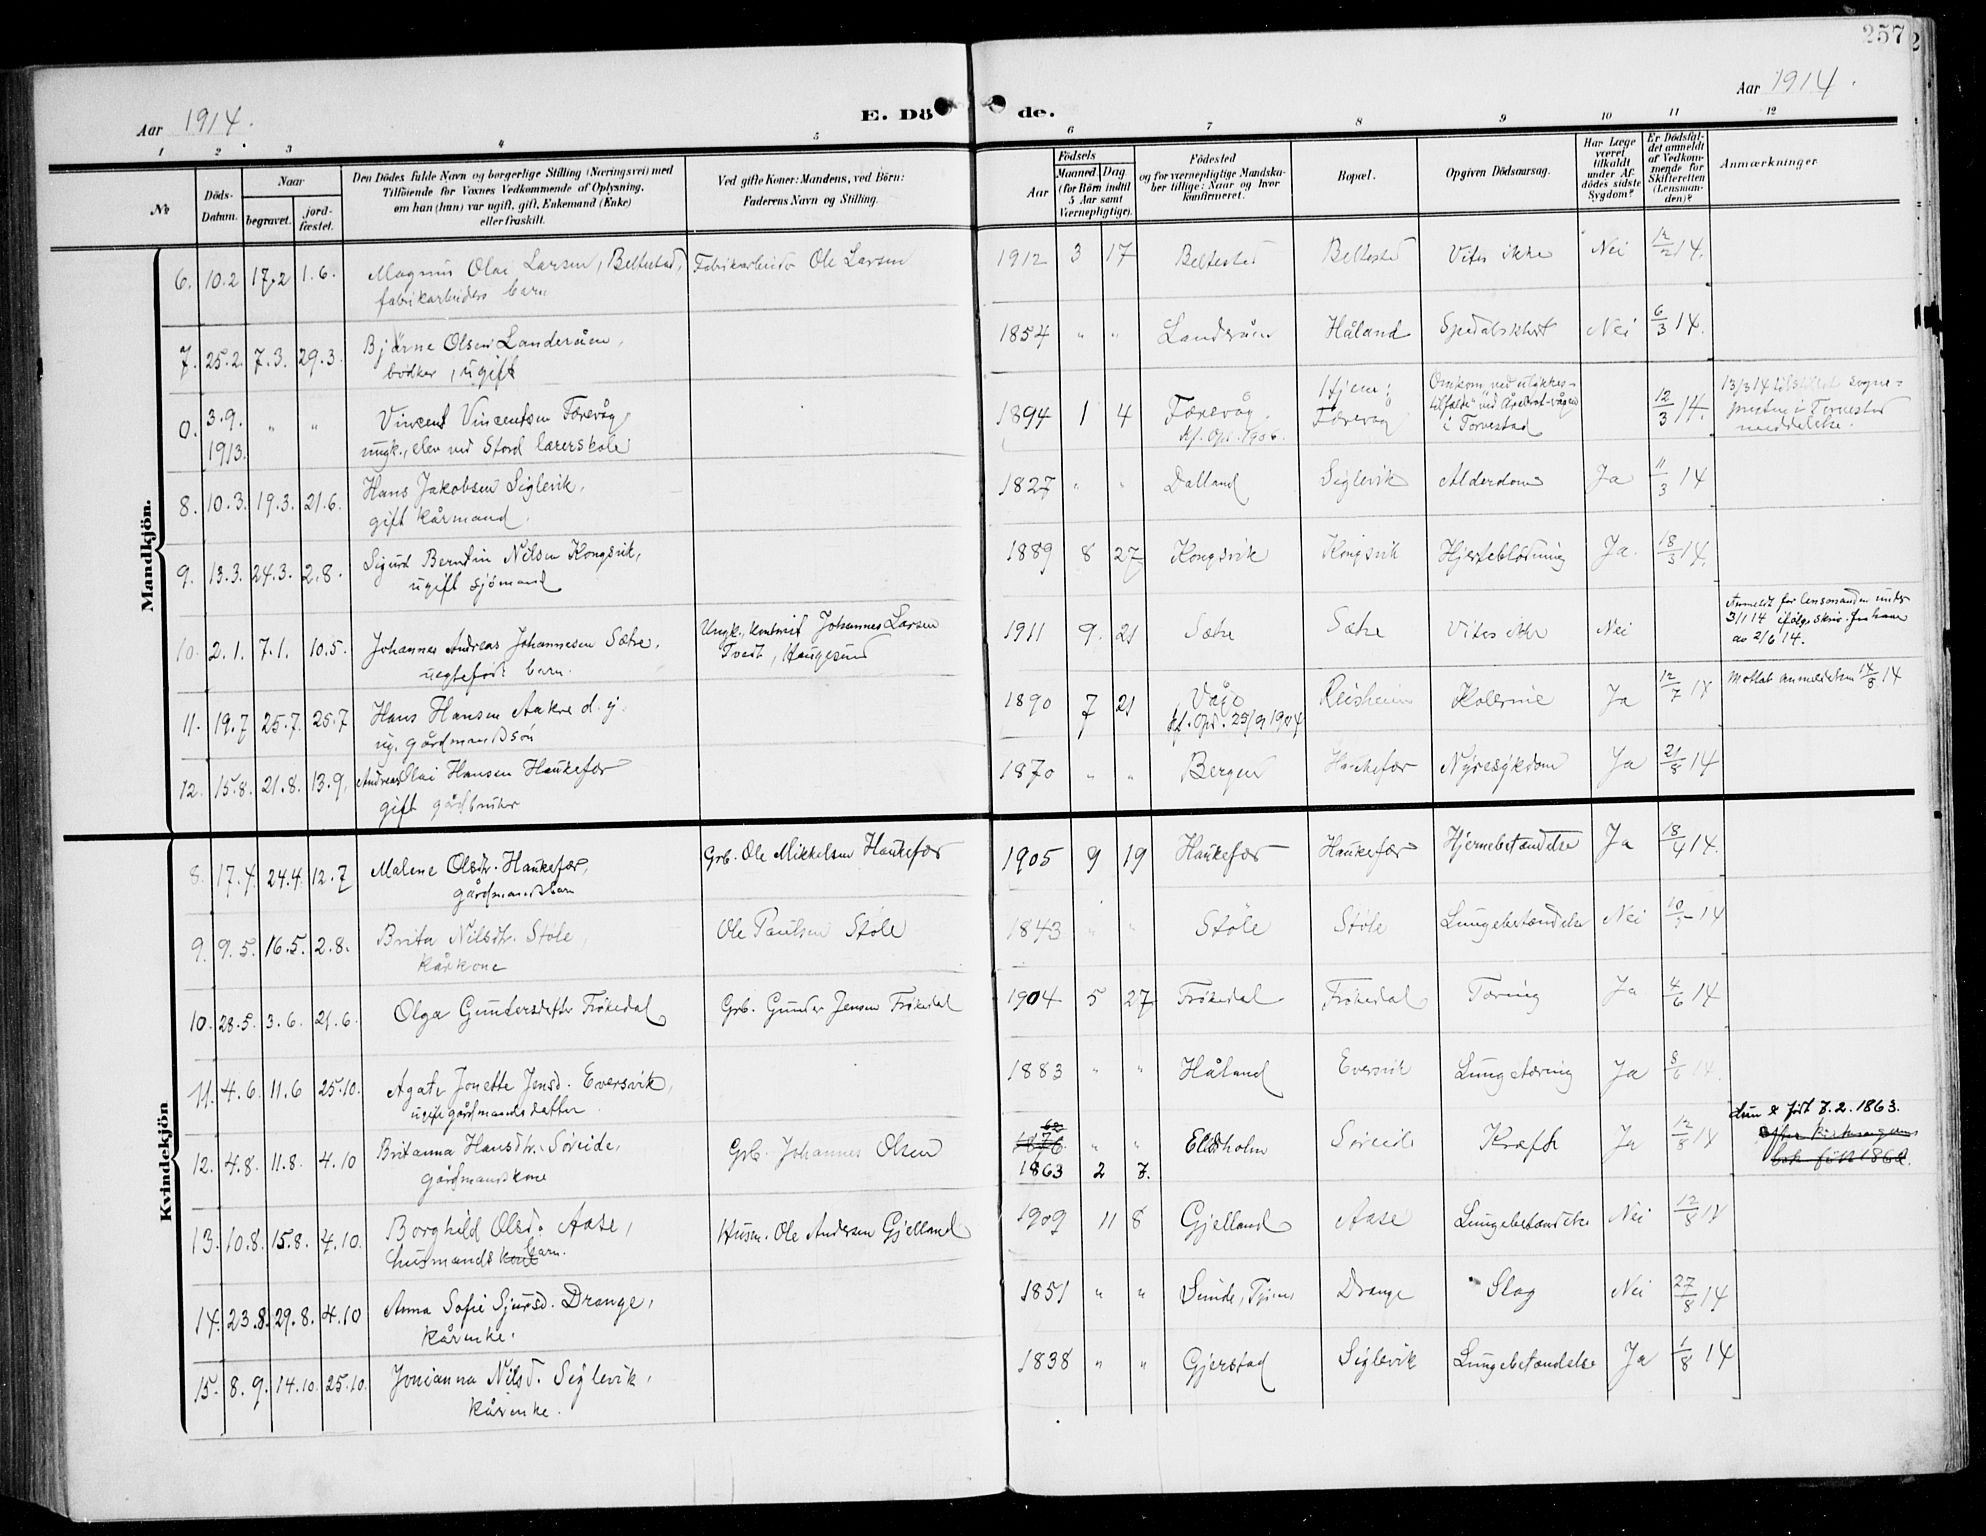 257
Aar 1914.
E. Döde.
Aar 1914.
1 2 3 4 5 6 7 8 9 10 11 12
№
Döds-Datum.
Naar
begravet.
jordfæstet.
Den Dödes fulde Navn og borgerlige Stilling (Næringsvei) med
Tilföiende for Voxnes Vedkommende af Oplysning,
om han (hun) var ugift, gift, Enkemand (Enke)
eller fraskilt.
Ved gifte Koner: Mandens, ved Börn:
Faderens Navn og Stilling.
Födsels
Aar
Maaned. Dag
(for Börn indtil
5 Aar samt
Værnepligtige).
Födested
og for værnepligtige Mandskaber tillige: Naar og hvor
konfirmeret.
Bopæl.
Opgiven Dödsaarsag.
Har Læge
været
tilkaldt
under Afdödes sidste
Sygdom?
Er Dödsfaldet anmeldt
af Vedkommende for
Skifteretten
(Lensmanden)?
Anmærkninger
Mandkjön.
6. 10.2 17.2 1.6. Magnus Olai Larsen, Beltestad, Fabrikarbeider Ole Larsen 1912 3 17 Beltestad Beltestad Vites ikke Nei 12/2 14.
fabrikarbeiders barn
7. 25.2. 7.3. 29.3. Bjarne Olsen Landeråen, 1854 " " Landeråen Håland Spedalskhet Nei 6/3 14.
bødker, ugift
0. 3.9. 1913. " " Vincent Vincentsen Færevåg 1894 1 4 Færevåg. Hjem: Færevåg Omkom ved ulykkestilfælde ved 12/3 14.
ungk., elev ved Stord lærerskole kf. Opd. 1906. i Torvestad
13/3 14 sognepresten i Torvestad meddelelse.
8. 10.3. 19.3. 21.6. Hans Jakobsen Siglevik, 1827 " " Dalland Siglevik Alderdom Ja 11/3 14
gift kårmand.
9. 13.3. 24.3. 2.8. Sigurd Berntin Nilsen Kongsvik, 1889 8 27 Kongsvik Kongsvik Hjerteblødning Ja. 18/3 14.
ugift sjømand
10. 2.1. 7.1. 10.5. Johannes Andreas Johannesen Sætre, Ungk., Johannes Larsen 1911 9. 21 Sætre Sætre Vites ikke Nei
uegtefødt barn. Tveit, Haugesund
Anmeldt for lensmanden 3/1 14 ifølge skriv. fra ham av 2/6 14.
11. 19.7 25.7. 25.7 Hans Hansen Aakre d. y. 1890 7 21 Våge Reisheim Ja 12/7 14 Mottat anmeldelsen 14/8 14
ug. gårdmandssøn kf. Opd. 25/9 1904
12. 15.8. 21.8. 13.9. Andreas Olai Hansen Haukefær 1870 " " Bergen Haukefær Nyresykdom Ja 21/8 14
gift gårdbruker
Kvindekjön
8. 17.4. 24.4. 12.7 Malene Olsdtr. Haukefær, Grb. Ole Mikkelsen Haukefær 1905 9 19 Haukefær Haukefær Hjernebetændelse Ja 18/4 14.
gårdmandsbarn
9. 9.5. 16.5. 2.8. Brita Nilsdtr. Støle, Ole Paulsen Støle 1843 " " Støle Støle Lungebetændelse Nei 10/5 14
kårkone
10. 28.5. 3.6. 21.6. Olga Gundersdatter Frøkedal Grb. Gunder Jensen Frøkedal 1904 5 27 Frøkedal Frøkedal Tæring Ja 4/6 14
11. 4.6. 11.6 25.10. Agate Jonette Jensd. Eversvik, 1883 " " Håland Eversvik Lungetæring Ja 8/6 14.
ugift gårdmandsdatter
12. 4.8. 11.8. 4.10 Britanna Hansdtr. Søreide, Grb. Johannes Olsen 1876 62 " " Eldsholm Søreide Kræft Ja 12/8 14
gårdmandskone 1863 2 7.
Hun er født 7.2.1863.
efter
født 1862.
13. 10.8. 15.8. 4.10. Borghild Olsd. Aase, Husm. Ole Andersen Gjelland 1909 11 8 Gjelland Aase Lungebetændelse Nei 12/8 14
husmands kone barn.
14. 23.8. 29.8. 4.10 Anna Sofie Sjursd. Drange, 1851 " " Sunde, Drange Slag Nei 27/8 14
kårenke.
15. 8.9. 14.10 25.10. Jonianna Nilsd. Siglevik, 1838 " " Gjerstad Siglevik Lungebetændelse Ja 1/8 14
kårenke.